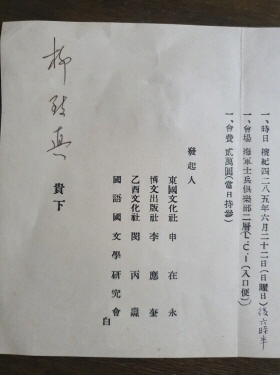 一、時日 檀紀四二八五年六月二十二日(日曜日)後六時半
一、會場 海軍士兵俱樂部二層T.C.1(入口便)
一、會費 貳萬圓(當日持參)
發起人
東國文化社 申在永
博文出版社 李應奎
乙酉文化社 閔丙
國語國文學硏究會
白
柳致真 貴下